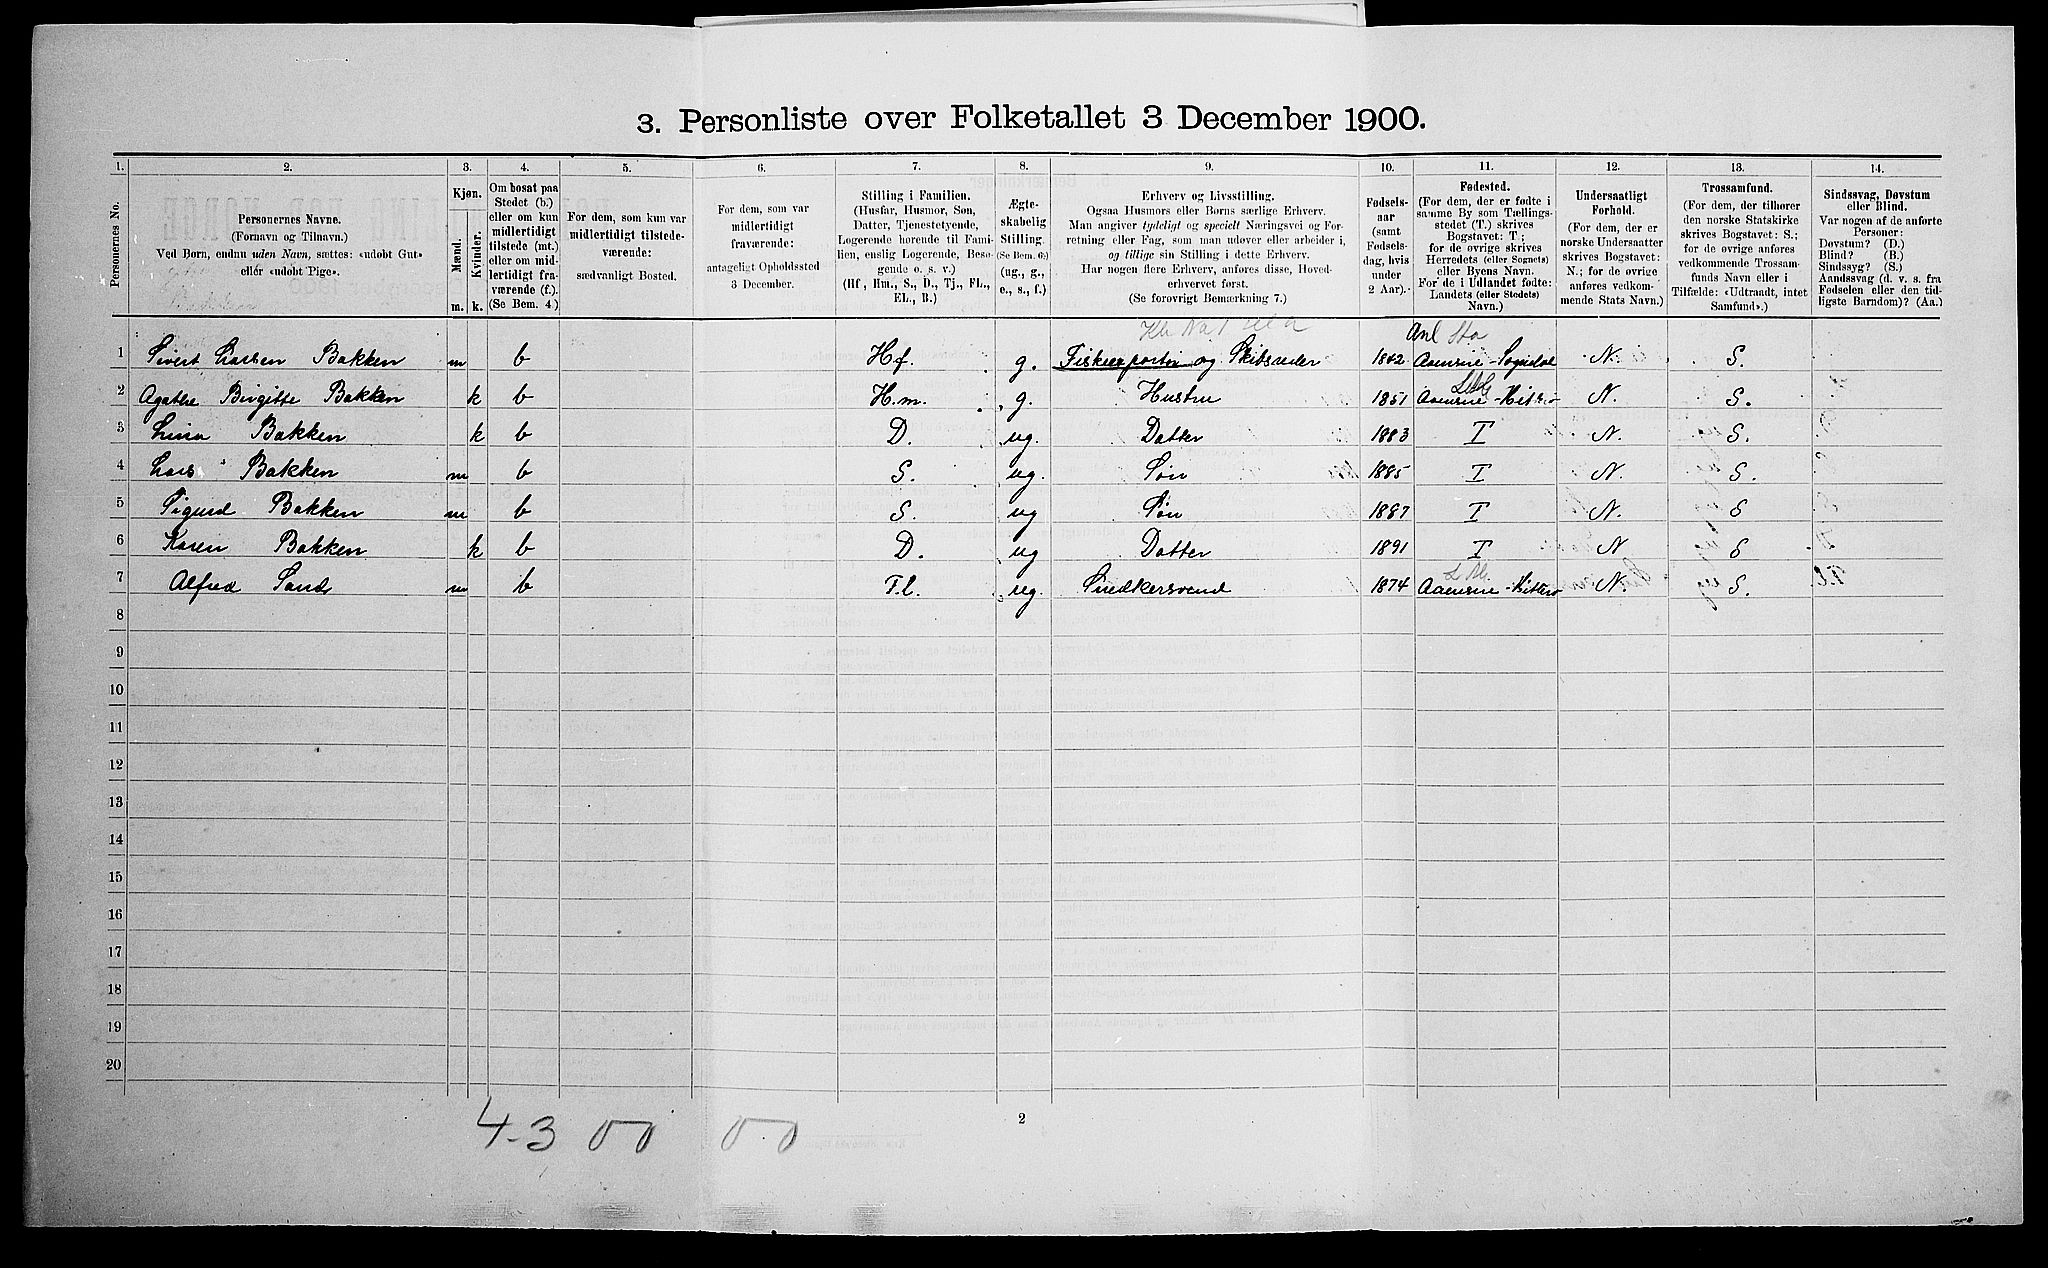 3. Personliste over Folketallet 3 December 1900.
1. 2. 3. 4. 5. 6. 7. 8. 9. 10. 11. 12. 13. 14.
Personernes No.
Personernes Navne.
(Fornavn og Tilnavn.)
Ved Børn, endnu uden Navn, sættes: «udøbt Gut»
eller «udøbt Pige».
Kjøn.
Mænd.
Kvinder.
m. k.
Om bosat paa
Stedet (b.)
eller om kun
midlertidigt
tilstede (mt.)
eller om mid-
lertidigt fra-
værende (f.).
(Se Bem. 4.)
For dem, som kun var
midlertidigt tilstede-
værende:
sædvanligt Bosted.
For dem, som var
midlertidigt
fraværende:
antageligt Opholdssted
3 December.
Stilling i Familien.
(Husfar, Husmor, Søn,
Datter, Tjenestetyende,
Logerende hørende til Fami-
lien, enslig Logerende, Besø-
gende o. s. v.)
(Hf., Hm., S., D., Tj., FL.,
EL., B.)
Ægte-
skabelig
Stilling.
(Se Bem. 6.)
(ug., g.,
e., s., f.)
Erhverv og Livsstilling.
Ogsaa Husmors eller Børns særlige Erhverv.
Man angiver tydeligt og specielt Næringsvei og For-
retning eller Fag, som man udøver eller arbeider i,
og tillige sin Stilling i dette Erhverv.
Har nogen flere Erhverv, anføres disse, Hoved-
erhvervet først.
(Se forøvrigt Bemærkning 7.)
Fødsels-
aar
(samt
Fødsels-
dag, hvis
under
2 Aar).
Fødested.
(For dem, der er fødte i
samme By som Tællings-
stedet (T.) skrives
Bogstavet: T.;
for de øvrige skrives
Herredets (eller Sognets)
eller Byens Navn.
For de i Udlandet fødte:
Landets (eller Stedets)
Navn.)
Undersaatligt
Forhold.
(For dem, der er
norske Undersaatter
skrives Bogstavet:
N.; for de øvrige
anføres vedkom-
mende Stats Navn.)
Trossamfund.
(For dem, der tilhører
den norske Statskirke
skrives Bogstavet: S.;
for de øvrige anføres
vedkommende Trossam-
funds Navn eller i
Tilfælde: «Udtraadt, intet
Samfund».)
Sindssvag, Døvstum
eller Blind.
Var nogen af de anførte
Personer:
Døvstum? (D.)
Blind? (B.)
Sindssyg? (S.)
Aandssvag (d. v. s. fra
Fødselen eller den tid-
ligste Barndom)? (Aa.)
1 Sivert Larsen Bakken m b Hf. g. Fiskeexportør og Skibsreder 1842 Aaensire-Sogndal N. S.
2 Agathe Birgitte Bakken k b H.m. g. Hustru 1851 Aaensire-Hitterø N. S.
3 Lina Bakken k b D. ug. Datter 1883 T N. S.
4 Lars Bakken m b S. ug. Søn 1885 T N. S.
5 Sigurd Bakken m b S. ug Søn 1887 T N. S
6 Karen Bakken k b D. ug Datter 1891 T N S
7 Alfred Sand m b F.l. ug. Snedkersvend 1874 Aaensire-Hitterø N. S.
8
9
10
11
12
13
14
15
16
17
18
19
20
4-3 00 0.0
2